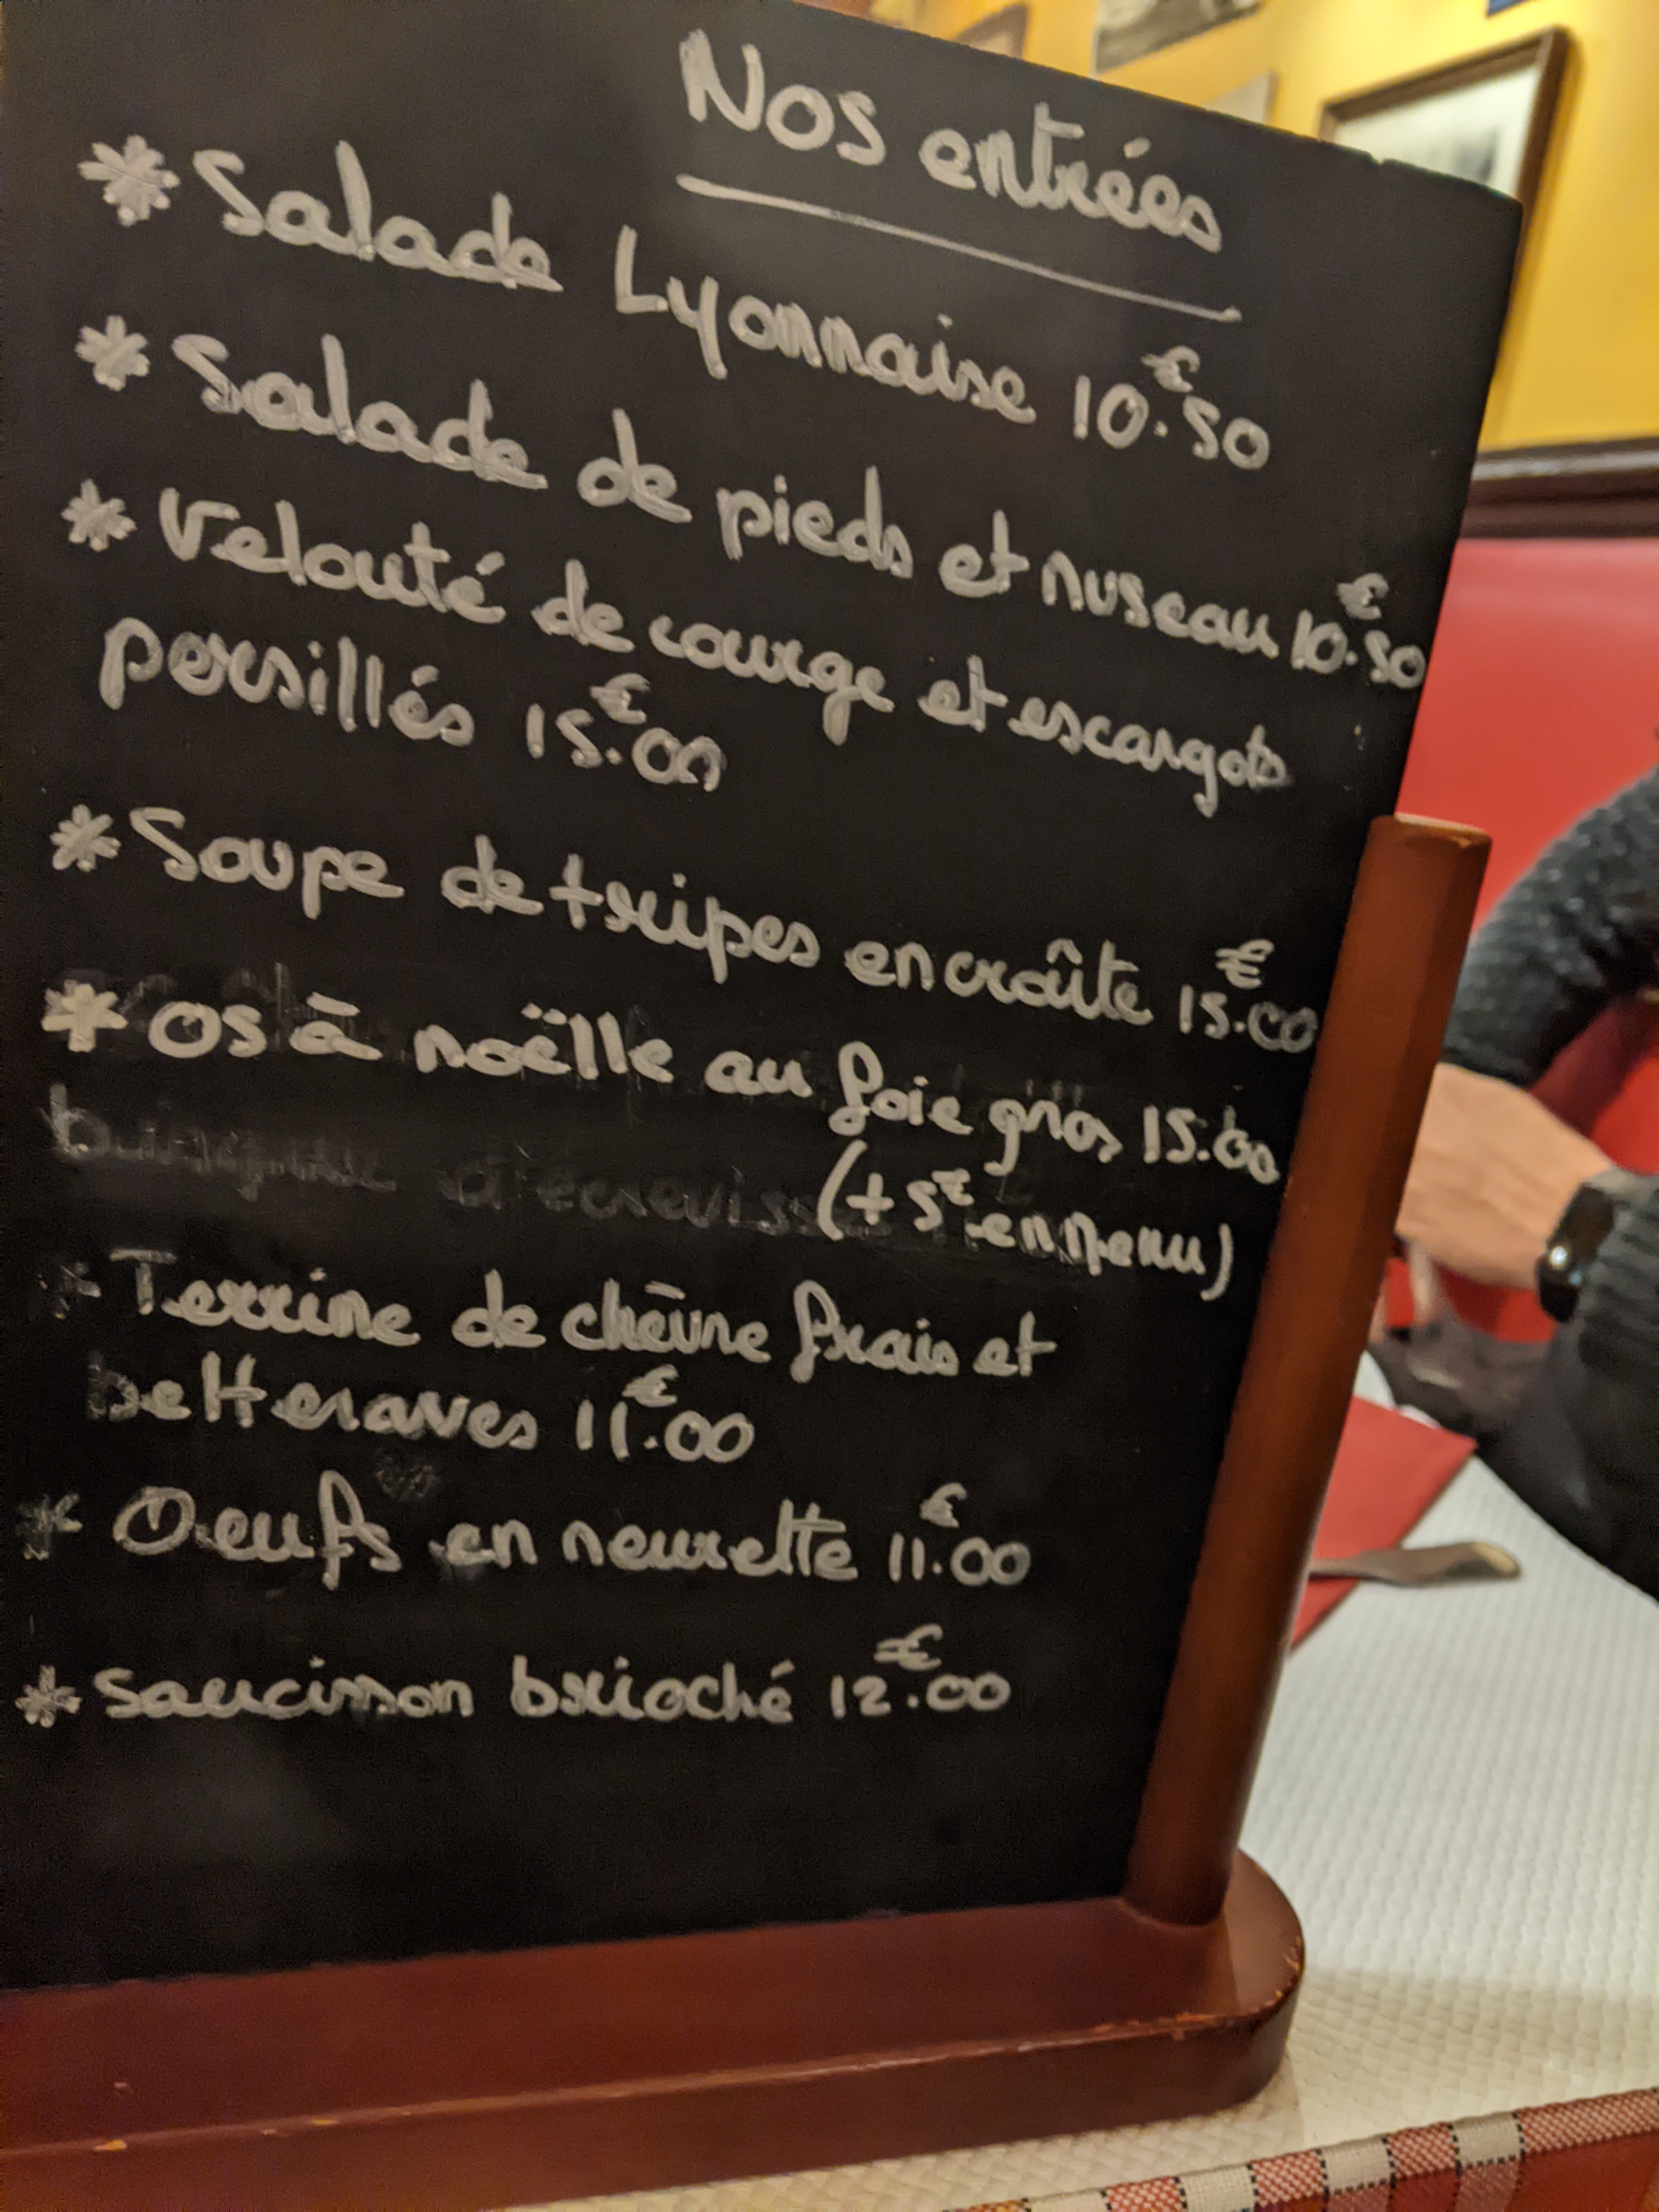 Nos entrées
* Salade Lyonnaise 10.€50
* Salade de pieds et museau 10.€50
* Velouté de courge et escargots
persillés 15.€00
* Soupe de tripes en croûte 15.€00
* Os à noëlle au foie gras 15.00
(+ 5€ en menu)
* Terrine de chèvre frais et
betteraves 11.€00
* Oeufs en meurette 11.€00
* Saucisson brioché 12.€00